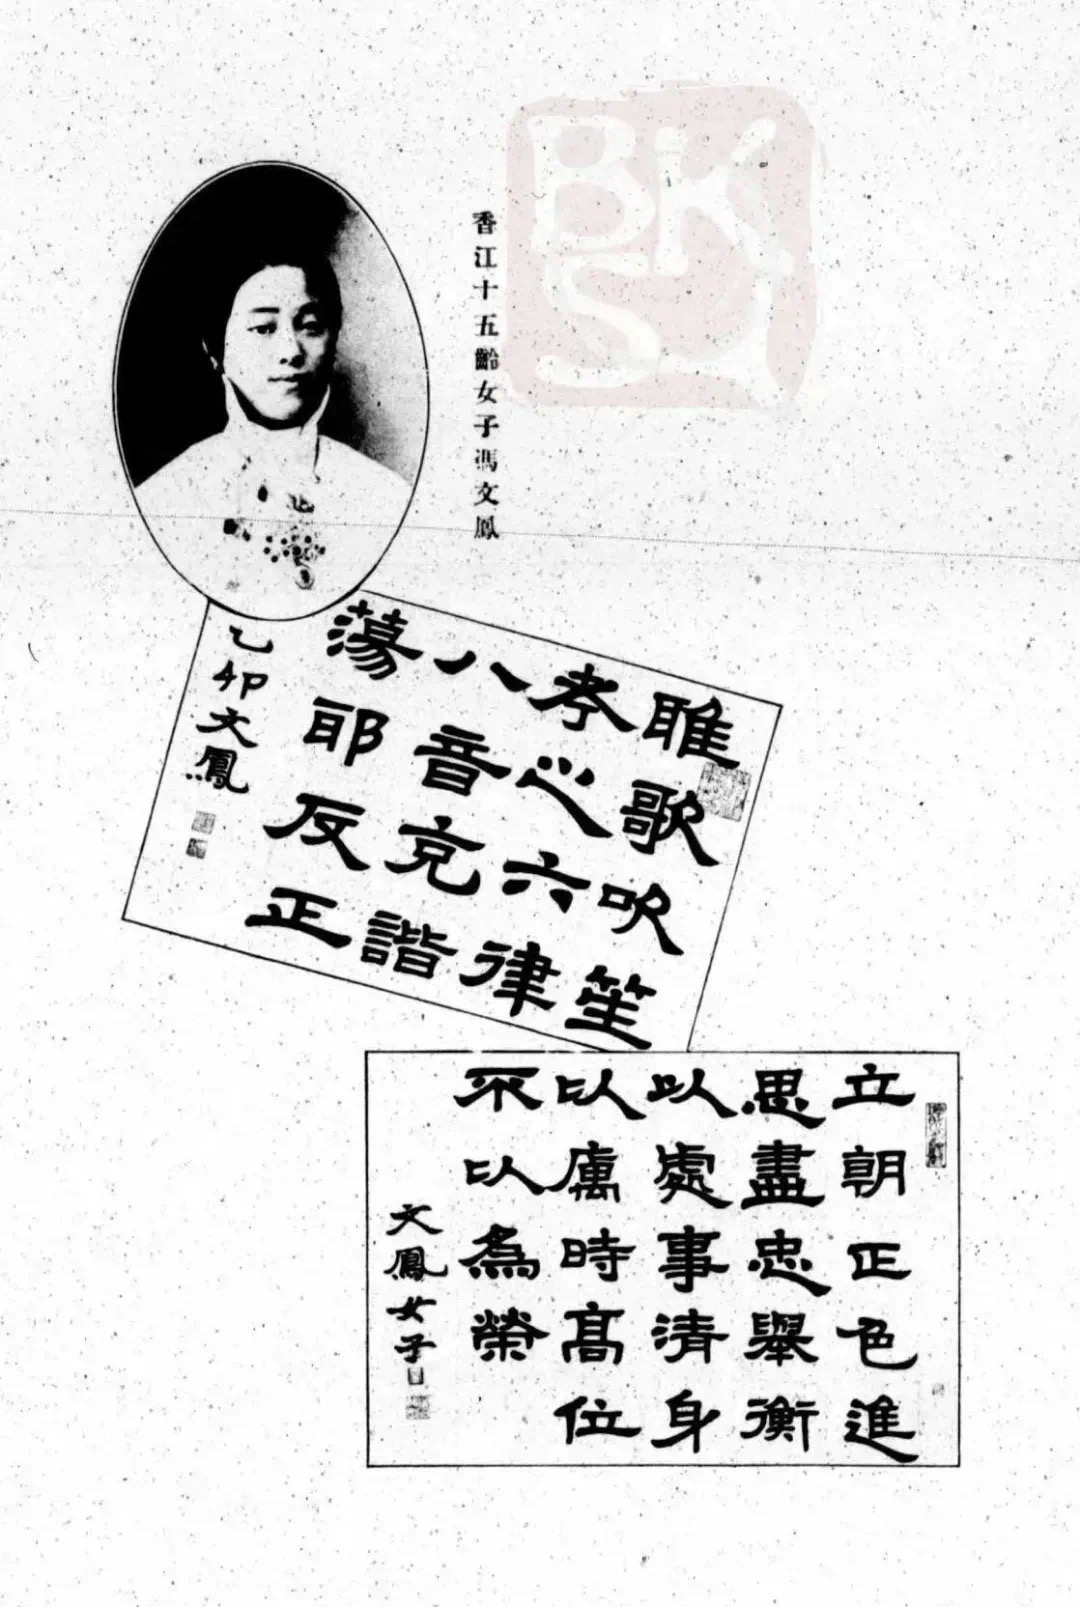 香江十五齡女子馮文鳳
雎歌吹笙
孝心六律
八音克諧
蕩耶反正
乙卯文鳳
立朝正色進
思盡忠舉衡
以處事清身
以厲時髙位
不以為榮
文鳳女子